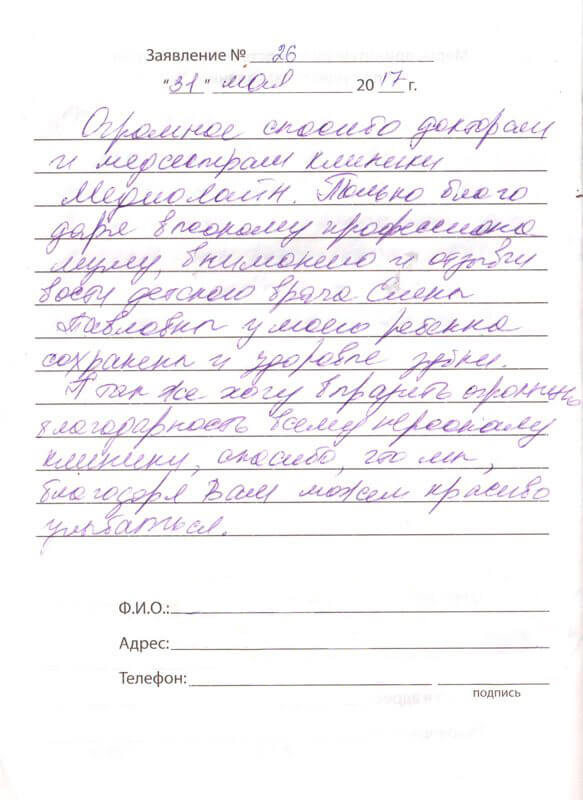 Заявление № 26
"31" мая 2017 г.
Огромное спасибо докторам
и медсестрам клиники
Медиолайн. Только благо
даря высокому профессиона
лизму, вниманию и отзывчи
вости детского врача Елены
Павловны у моего ребенка
сохранены и здоровые зубки.
А так же хочу выразить огромную
благодарность всему персоналу
клиники, спасибо, что мы,
благодаря Вам можем красиво
улыбаться.
Ф.И.О.:
Адрес:
Телефон:
подпись